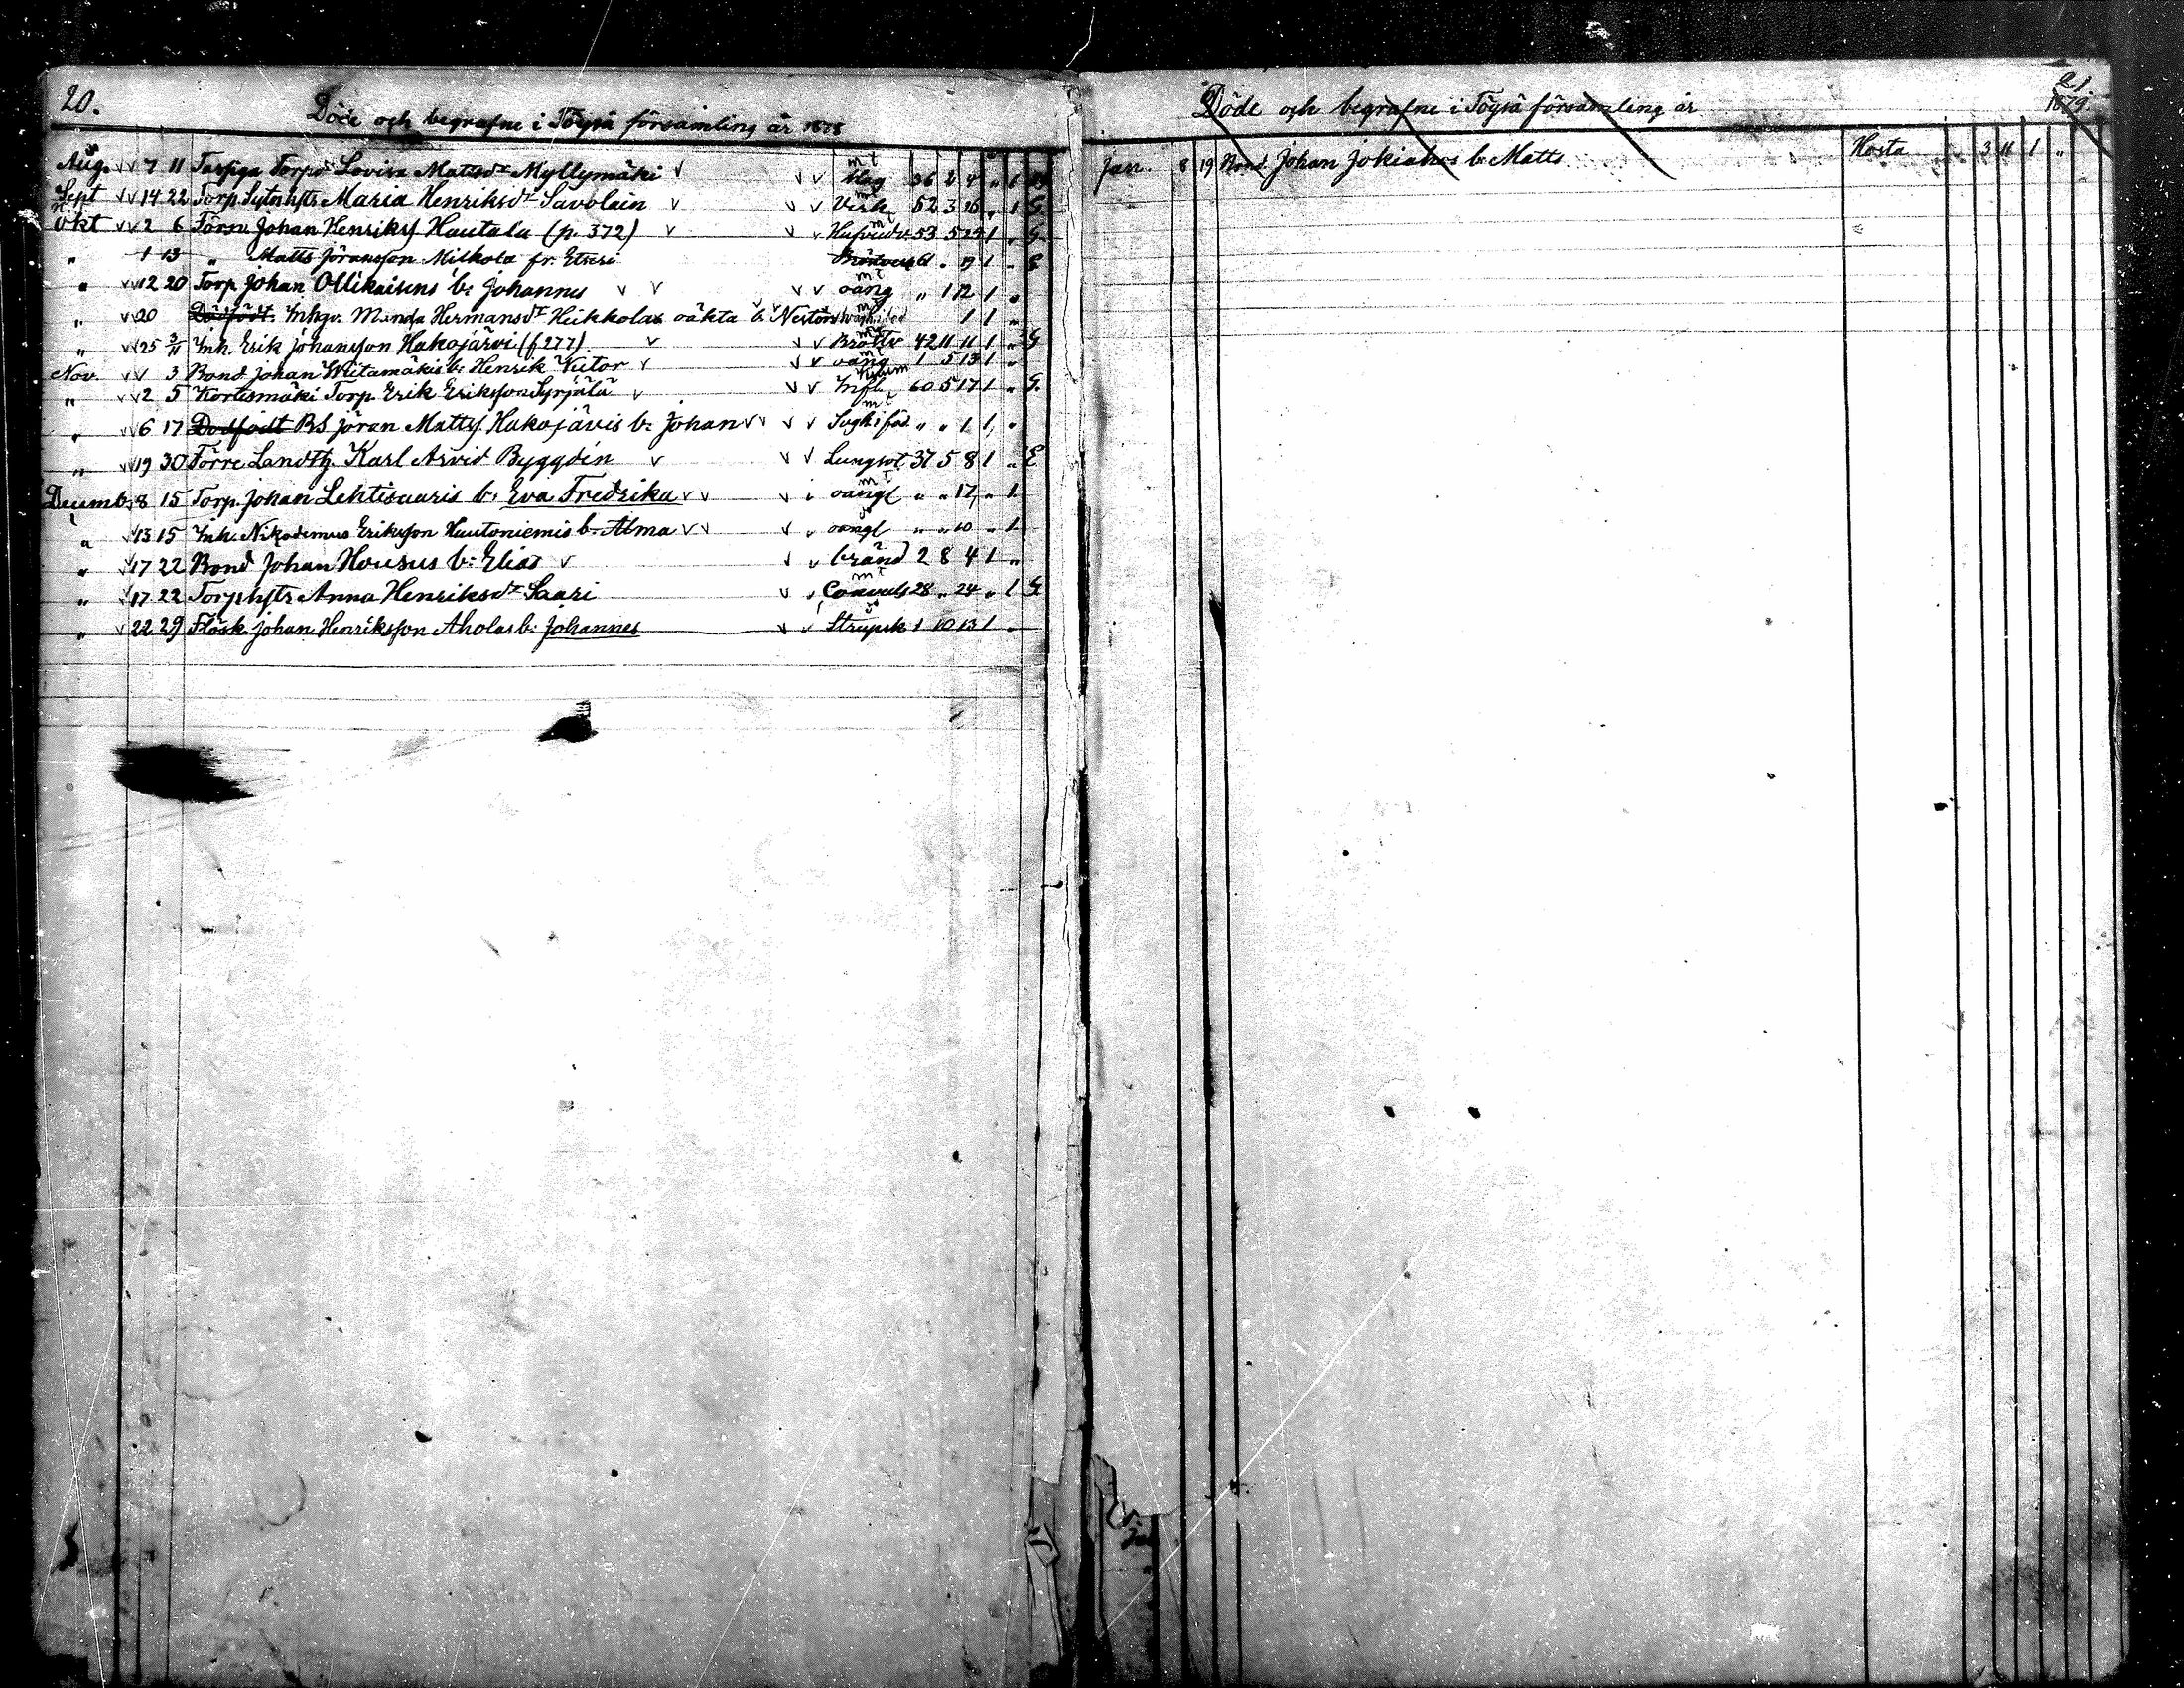 20.
Döde och begrafne i Töysä församling år 1878
Aug. 7 11 Torpd Lovisa Mattsdr Myllymäki mt Mag 36 2 4 " 1
Sept 14 22 Torp. hstr Maria Henriksdr Savolain Verk 52 3 25 " 1 G.
Okt 2 6 Törsv. Johan Henriks Hautala (p. 372) 53 5 1 " G
" 1 13 " Matts Jöransson Milkola fr. Etseri 61 " 19 1 " E
" 12 20 Torp. Johan Ollikaisens b: Johannes mt oäng " 1 12 1 "
" 20 Dödfödt. Inhgr. Manda Hermansdr Heikkolas oäkta b: Nestor 1 1 "
" 25 3/11 Inh. Erik Johansson Hakojärvi (f 277) Bröstv 42 11 11 1 " G
Nov. 1 3 Bond Johan Wiitamäkis b: Henrik Victor mt oäng 1 5 13 1 "
" 2 5 Kortesmäki Torp. Erik Eriksson Syrjälä Infl. 60 5 17 1 " G.
" 6 17 Dödfödt BS Jöran Matts Hakojävis b: Johan mt Svghs föd " " 1 1 "
" 19 30 Förre Landtg. Karl Arvid Byggdén Lungsot 37 5 8 1 " E
Decemb. 8 15 Torp. Johan Lehtisaaris b: Eva Fredrika mt oängl " " 17 " 1
" 13 15 Inh. Nikodemus Eriksson Hautoniemis b: Alma oängl " " 10 " 1
" 17 22 Bond Johan Housus b: Elias bränd 2 8 4 1 "
" 17 22 Torp. hstr Anna Henriksdr Saari mt Convuls 28 " 24 " 1 G
" 22 29 Flösk. Johan Henriksson Aholas b: Johannes Strupsk 1 10 13 1 "
21.
Döde och begrafne i Töysä församling år 1879.
Jan. 8 19 Bond. Johan Jokiahos b: Matts Hosta 3 11 1 "